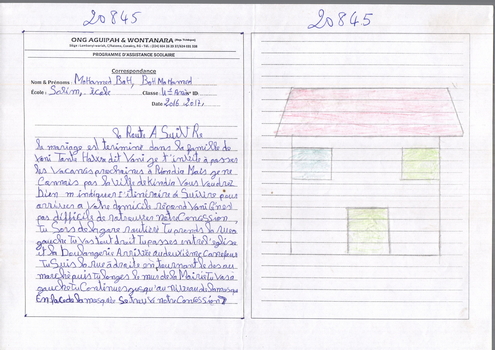 20845
20845
ONG AGUIPAH & WONTANARA
PROGRAMME D'ASSISTANCE SCOLAIRE
Correspondance
Nom & Prénoms: Mohamed Bah, Bah Mohamed
École: Salim, école Classe: 4è Année
Date 2016 2017,
la Route A SuiVRe
le mariage est terminé dans la famille de
Vani Tante Hawa dit Vani je t'invite à passer
les vacances prochaines à Kindia Mais je ne
Connais pas la Ville de Kindia Vous Voudrez
bien m'indiquer l'itinéraire à Suivre pour
arriver à Votre domicile répond Vani C'est
pas difficile de retrouver notre Concession,
tu Sors de la gare routière tu prends la rue
gauche tu Vas tout droit tu passes entre l'église
et la Boulangerie Arrivée au deuxième Carrefour
tu Suis la rue à droite en tournant le dos au
marché puis tu longes le mur de la Mairie tu Vas à
gauche tu Continues jusqu'au Niveau de la mosquée
En face de la mosquée Se trouve notre Concession